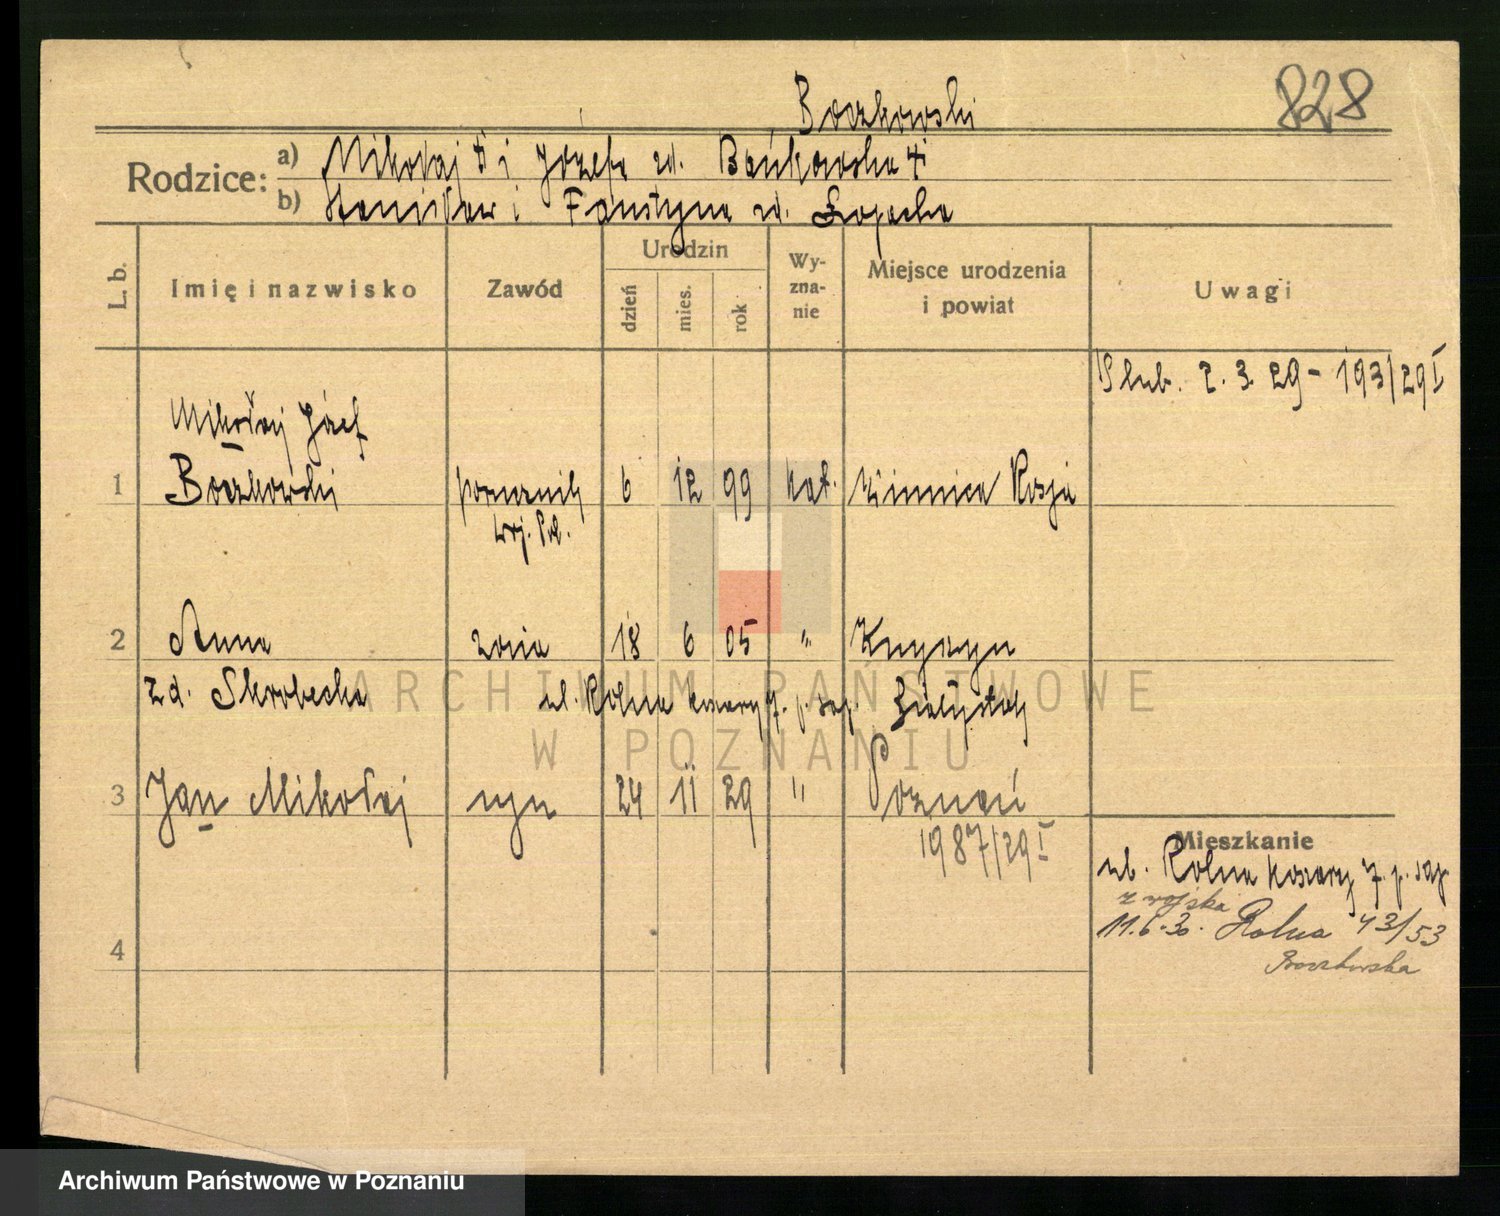 828
Boczkowski
Rodzice:
a) Mikołaj † i Józefa zd. Bańkowska †
b) Stanisław i Faustyna zd. Łopacka
L. b.
Imię i nazwisko
Zawód
Urodzin
dzień
mies.
rok
Wy-
zna-
nie
Miejsce urodzenia
i powiat
Uwagi
Ślub. 2. 3. 29 - 193/29 I
Mikołaj Józef
1 Boczkowski porucznik 6 12 99 kat. Winnica Rosja
woj. Pol.
2 Anna żona 18 6 05 " Knyszyn
zd. Skrobecka ul. Rolna koszary 7. p. sap. Białystok
3 Jan Mikołaj syn 24 11 29 " Poznań
1987/29 I
Mieszkanie
ul. Rolna koszary 7. p. sap.
z wojska
11.6.30. Rolna 43/53
Boczkowska
4
ARCHIWUM PAŃSTWOWE
W POZNANIU
Archiwum Państwowe w Poznaniu